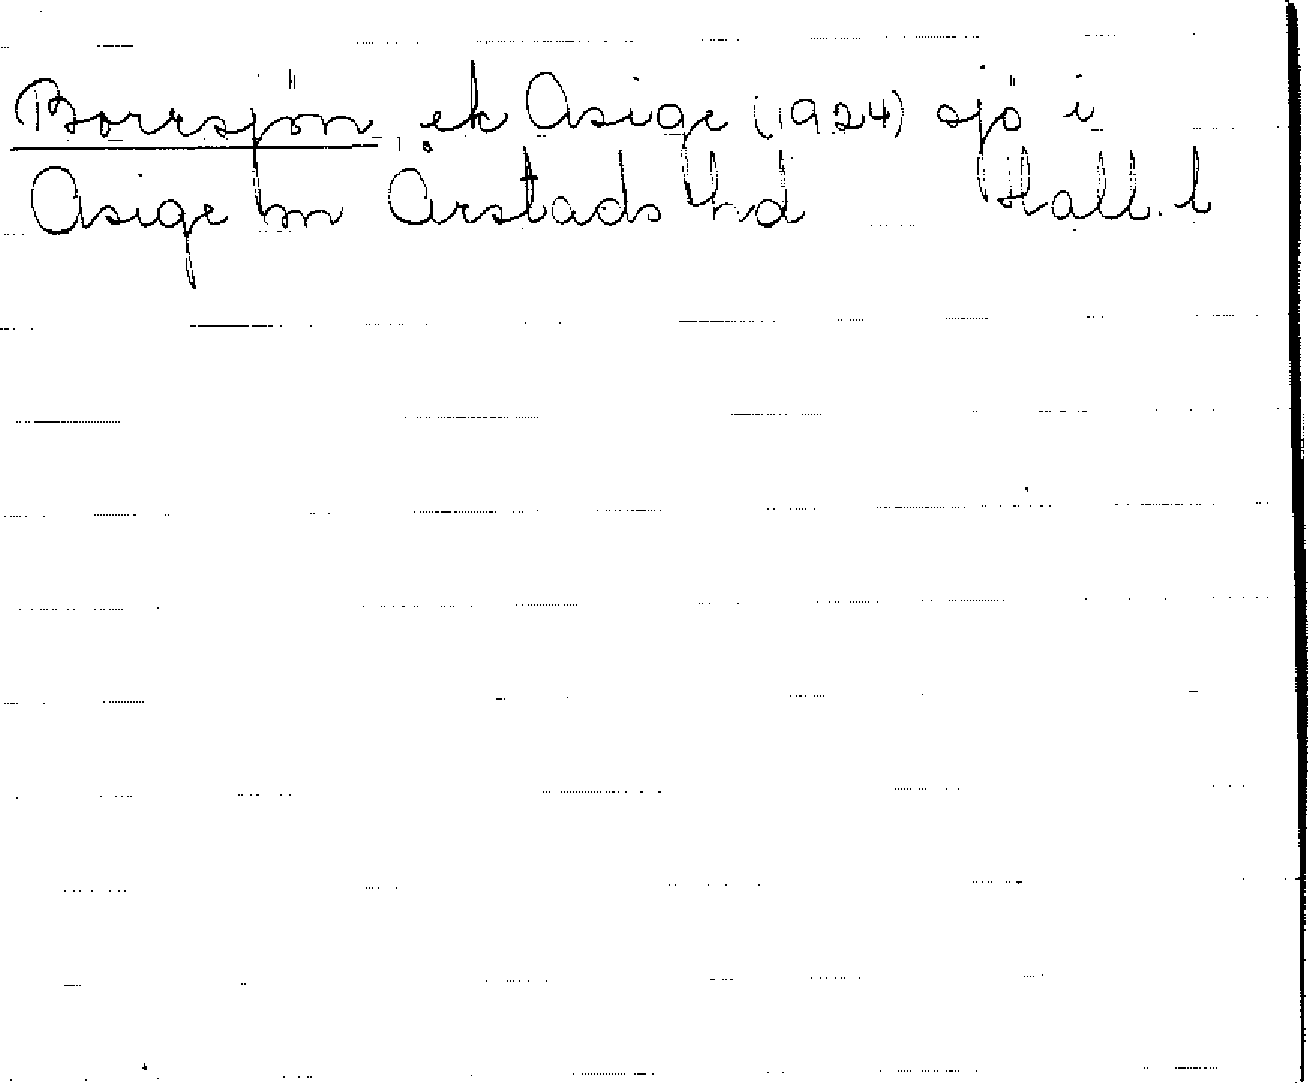 Borrsjön, ek Asige (1924) sjö i
Asige sn Årstads hd Hall. l